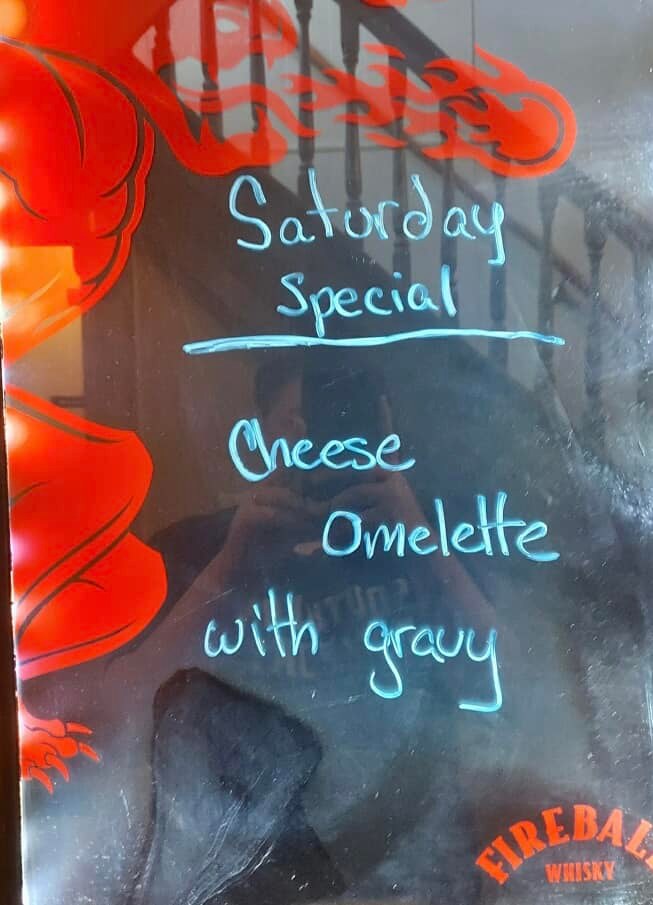 Saturday
Special
Cheese
Omelette
with gravy
FIREBALL
WHISKY